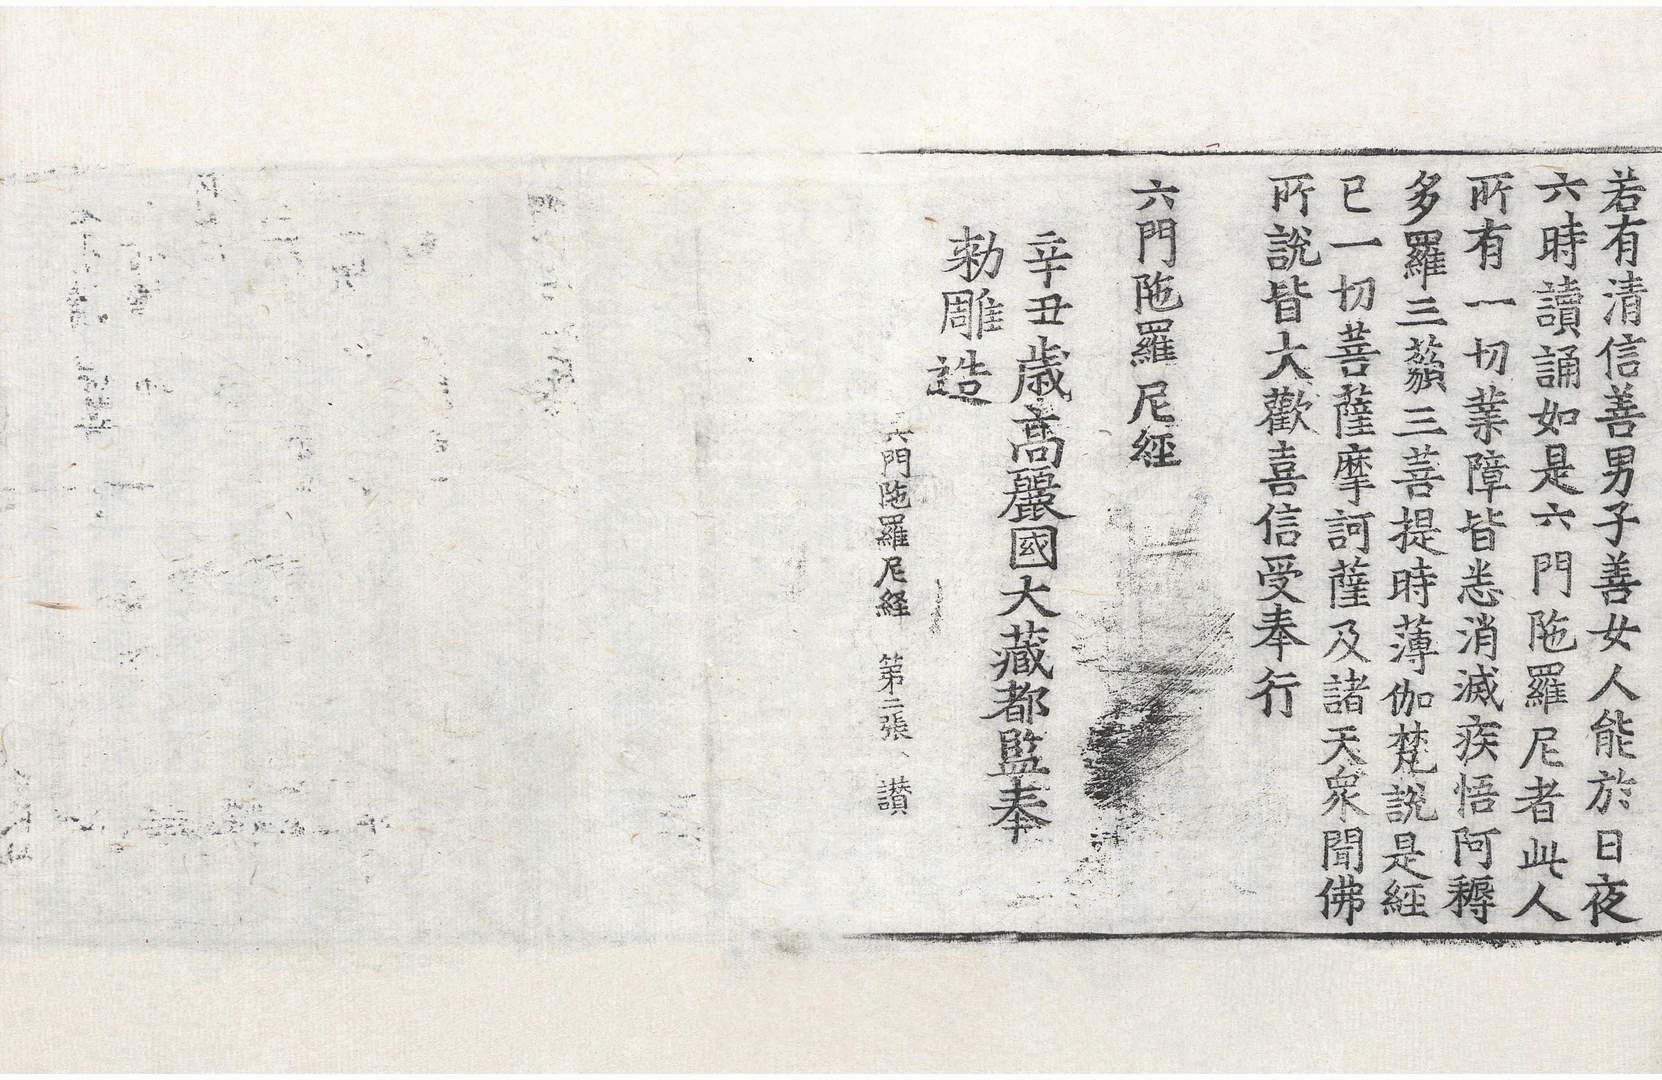 若有清信善男子善女人能於日夜
六時讀誦如是六門陁羅尼者此人
所有一切業障皆悉消滅疾悟阿耨
多羅三藐三菩提時薄伽梵說是經
已一切菩薩摩訶薩及諸天衆聞佛
所說皆大歡喜信受奉行
六門陁羅尼經
辛丑歲高麗國大藏都監奉
勅雕造
六門陁羅尼経 第二張 讃